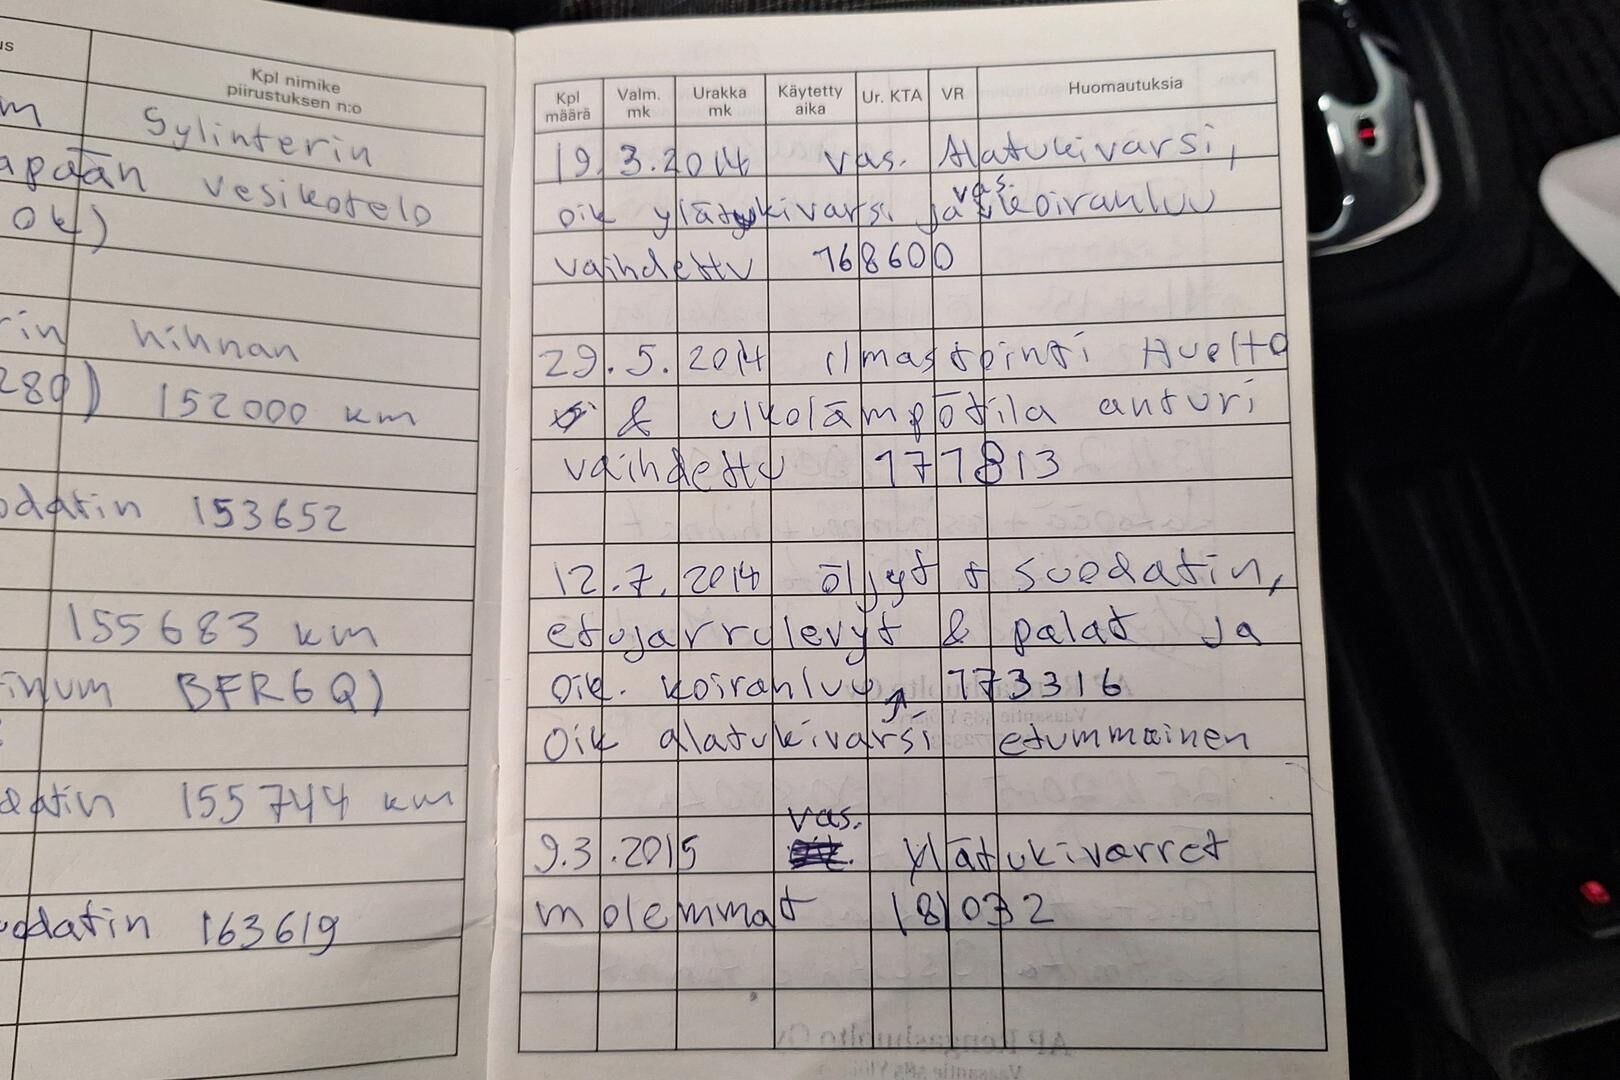 us
Kpl nimike
piirustuksen n:o
m Sylinterin
apään vesikotelo
ok)
rin hihnan
280) 152000 km
odatin 153652
155683 km
inum BFR6Q)
datin 155744 km
uodatin 163619
Kpl määrä Valm. mk Urakka mk Käytetty aika Ur. KTA VR Huomautuksia
19.3.2014 vas. Alatukivarsi,
oik ylätukivarsi ja vas. koiranluu
vaihdettu 168600
29.5.2014 ilmastointi Huelto
& ulkolämpötila anturi
vaihdettu 171813
12.7.2014 öljyt + suodatin,
etujarrulevyt & palat ja
oik. koiranluu, 173316
Oik alatukivarsi etummainen
9.3.2015 vas. Ylätukivarret
molemmat 181032
AP Rengashuolto Oy